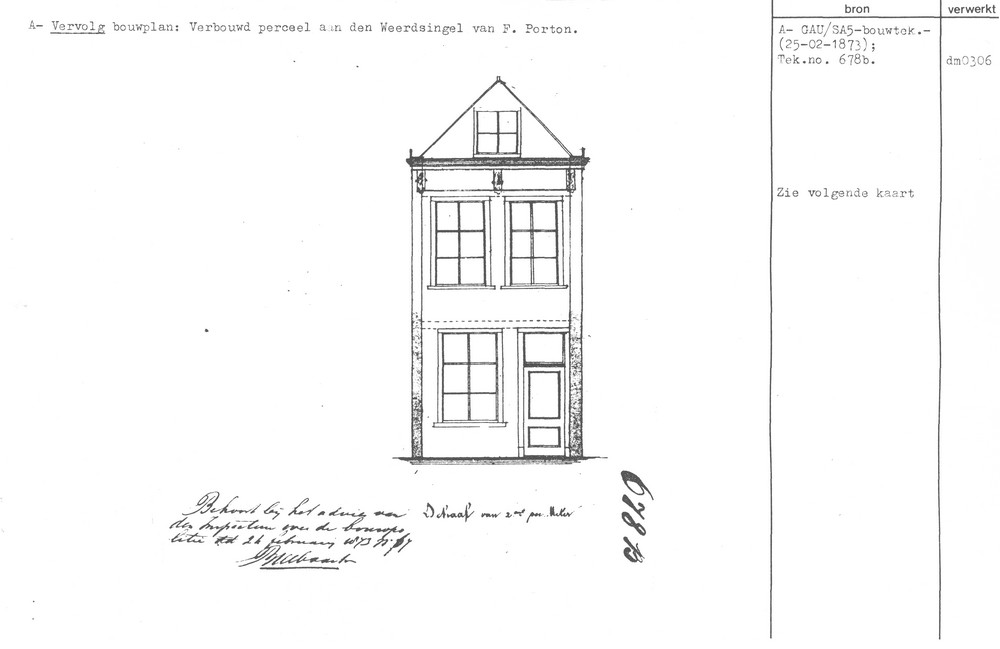 A- Vervolg bouwplan: Verbouwd perceel aan den Weerdsingel van F. Porton.
bron
verwerkt
A- GAU/SA5-bouwtek.-
(25-02-1873);
Tek.no. 678b.
dm0306
Zie volgende kaart
Behoort bij het advies van
den Inspecteur over de bouwpo
litie dd 24 februarij 1873 No
Schaal van 2 per Meter
678 B